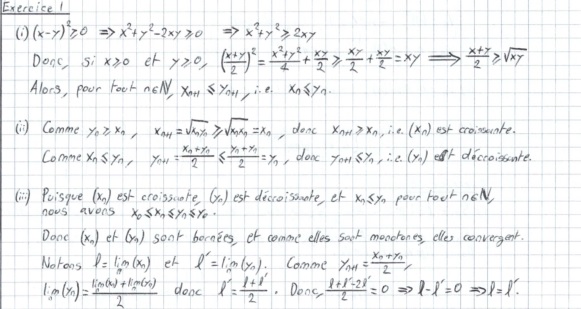 Exercice 1
(i) (x-y)² ≥ 0 ⇒ x²+y²-2xy ≥ 0 ⇒ x²+y² ≥ 2xy
Donc, si x ≥ 0 et y ≥ 0, ((x+y)/2)² = (x²+y²)/4 + xy/2 ≥ xy/2 + xy/2 = xy ⟹ (x+y)/2 ≥ √xy
Alors, pour tout n∈ℕ, xₙ₊₁ ≤ yₙ₊₁, i.e. xₙ ≤ yₙ.
(ii) Comme yₙ ≥ xₙ, xₙ₊₁ = √xₙyₙ ≥ √xₙxₙ = xₙ, donc xₙ₊₁ ≥ xₙ, i.e. (xₙ) est croissante.
Comme xₙ ≤ yₙ, yₙ₊₁ = (xₙ+yₙ)/2 ≤ (yₙ+yₙ)/2 = yₙ, donc yₙ₊₁ ≤ yₙ, i.e. (yₙ) est décroissante.
(iii) Puisque (xₙ) est croissante, (yₙ) est décroissante, et xₙ ≤ yₙ pour tout n∈ℕ,
nous avons x₀ ≤ xₙ ≤ yₙ ≤ y₀.
Donc (xₙ) et (yₙ) sont bornées, et comme elles sont monotones, elles convergent.
Notons l = limₙ(xₙ) et l' = limₙ(yₙ). Comme yₙ₊₁ = (xₙ+yₙ)/2,
limₙ(yₙ) = (lim(xₙ) + lim(yₙ))/2 donc l' = (l+l')/2. Donc, (l+l'-2l')/2 = 0 ⇒ l-l' = 0 ⇒ l = l'.